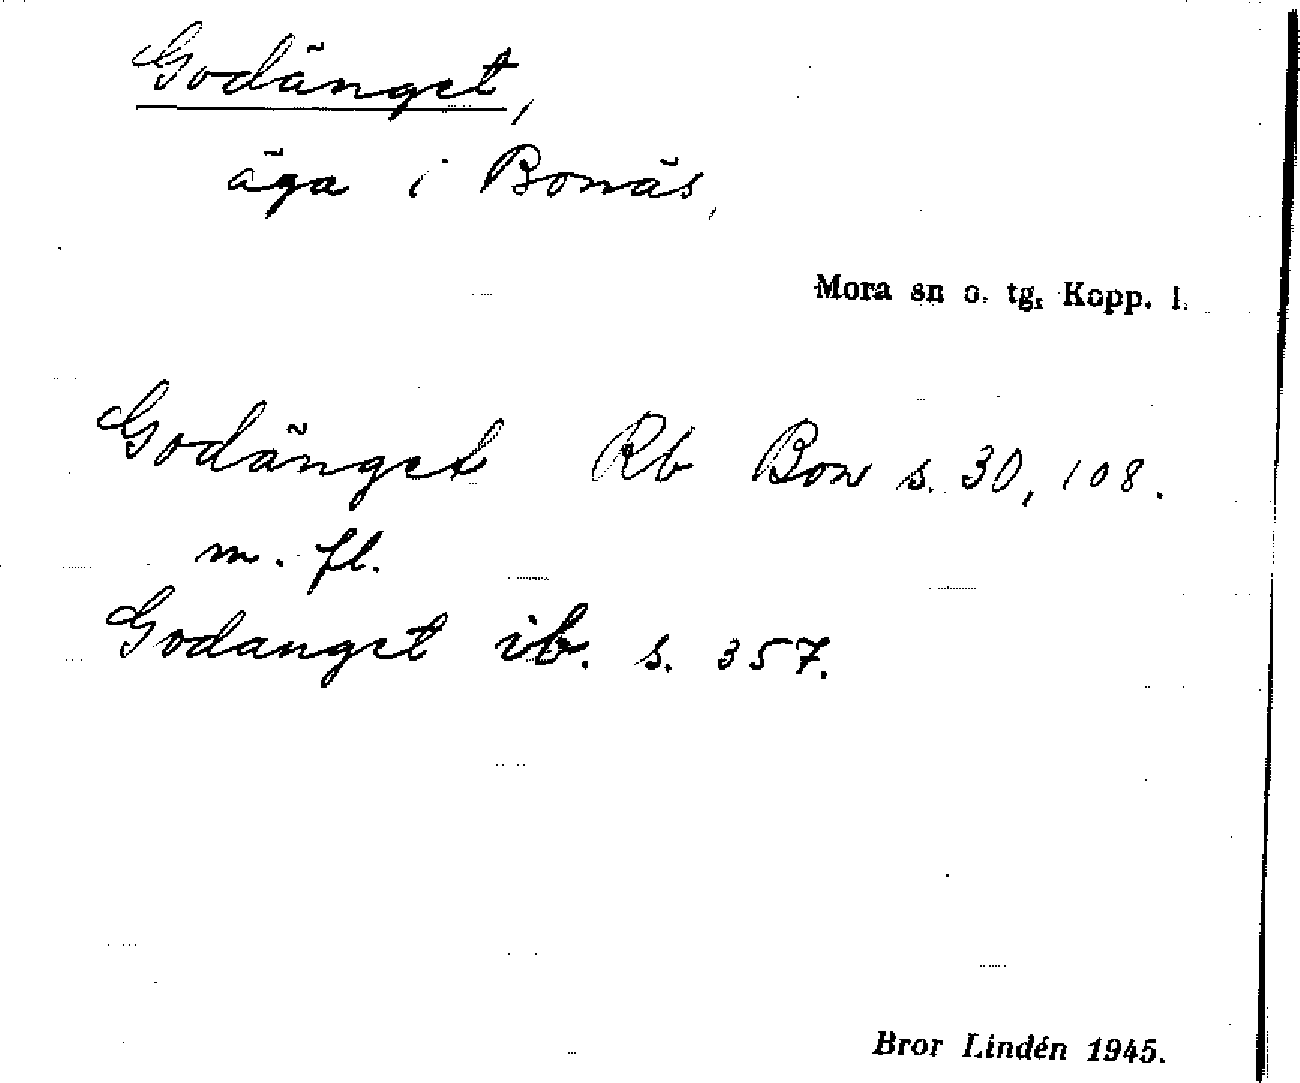 Godänget,
äga i Bonäs,
Mora sn o. tg. Kopp. l.
Godänget Rb Bon s. 30, 108.
m. fl.
Godanget ib. s. 357.
Bror Lindén 1945.